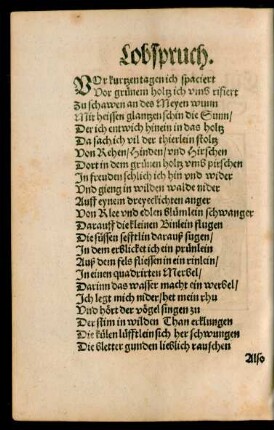 Lobspruch.
VOr kurtzen tagen ich spaciert
Vor grünem holtz ich vmb refiert
Zu schawen an des Meyen wunn
Mit heissen glantzen schin die Sunn/
Der ich entwich hinein in das holtz
Da sach ich vil der thierlein stoltz
Von Rehen/Hinden/vnd Hirschen
Dort in dem grünen holtz vmb pirschen
In freuden schlich ich hin vnd wider
Vnd gieng in wilden walde nider
Auff eynem dreyeckichten anger
Von Klee vnd edlen blümlein schwanger
Darauff die kleinen Binlein flugen
Die süssen sefftlin darauß sugen/
In dem erblicket ich ein prünlein
Auß dem fels fliessen in ein rinlein/
In einen quadrirten Merbel/
Darinn das wasser macht ein werbel/
Ich legt mich nider/het mein rhu
Vnd hört der vögel singen zu
Der stim in wilden Than erklungen
Die külen lüfftlein sich her schwungen
Die bletter gunden lieblich rauschen
Also